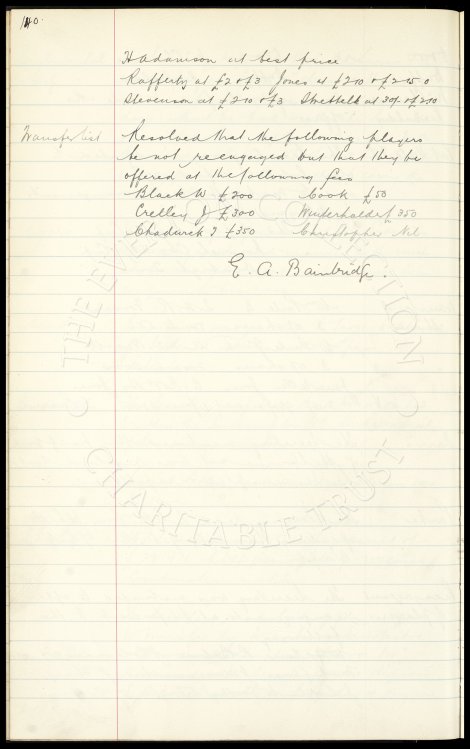 140.
H Adamson at best price
Rafferty at £2 or £3 Jones at £2-10 or £2-15-0
Stevenson at £2-10 or £3 Strettell at 30/- or £2-10
Transfer list Resolved that the following players
be not reengaged but that they be
offered at the following fees
Black W £200 Cook £50
Crelley J £300 Winterhalder £350
Chadwick T £350 Christopher Nil
E. A. Bainbridge.
© THE EVERTON COLLECTION
CHARITABLE TRUST